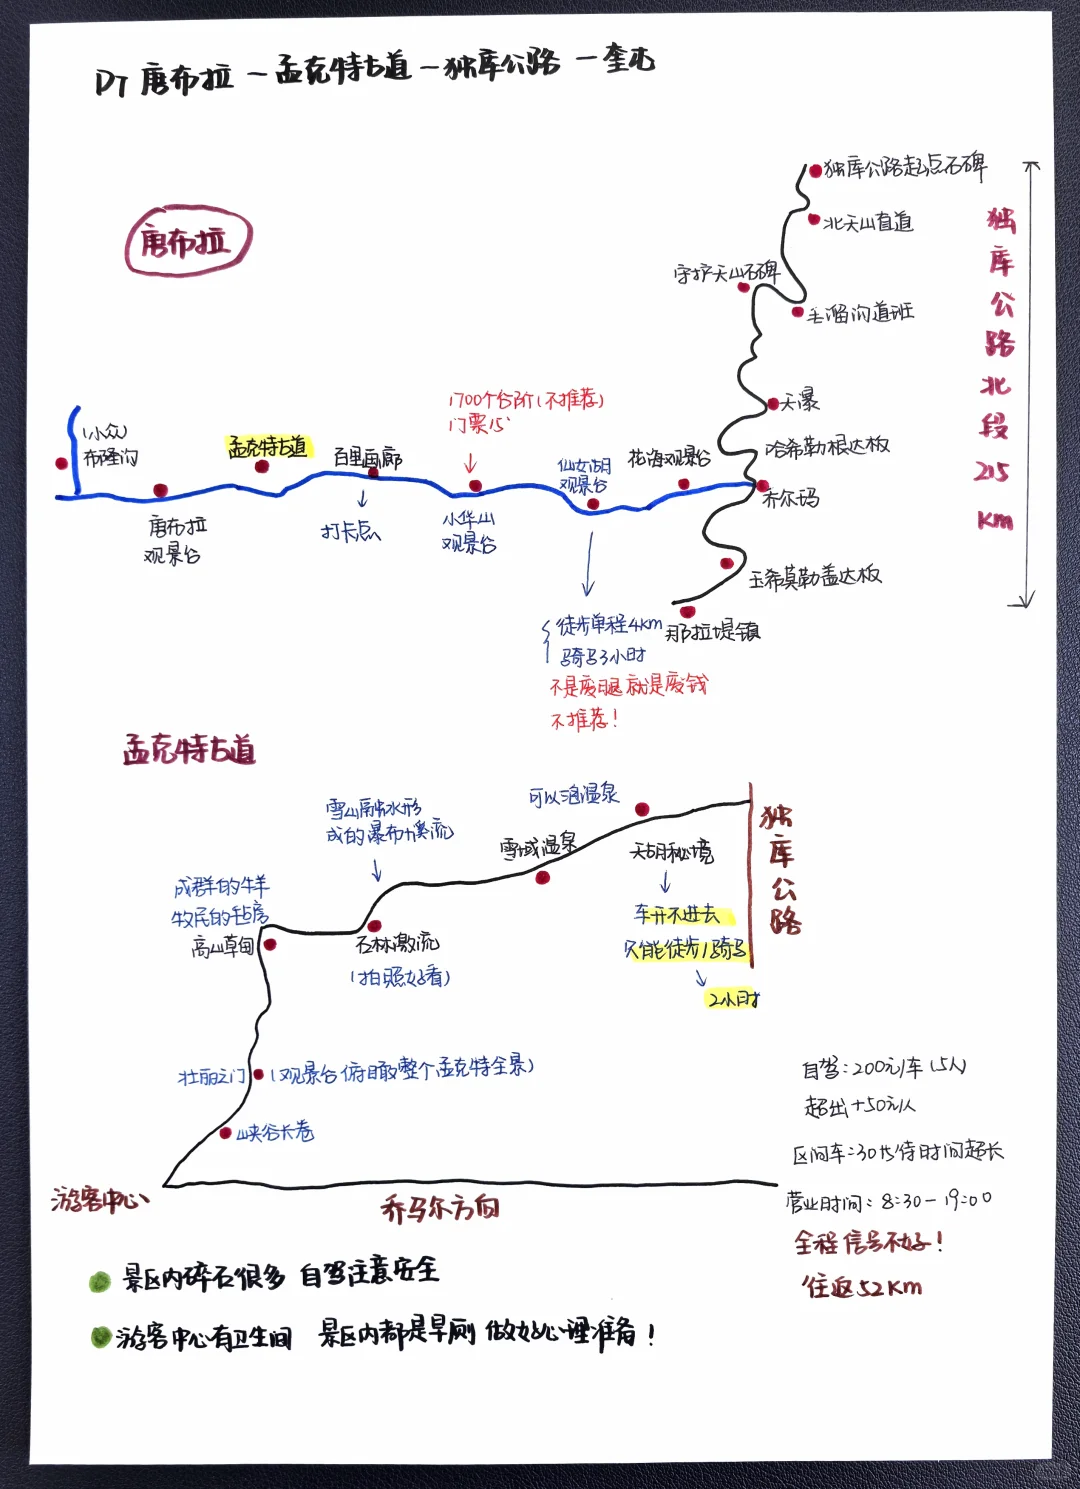 D7 唐布拉 - 孟克特古道 - 独库公路 - 奎屯
独库公路起点石碑
北天山直道
守护天山石碑
毛溜沟道班
唐布拉
独库公路北段 215 KM
1700个台阶(不推荐)
门票15
天瀑
(小众)
布隆沟
孟克特古道
百里画廊
仙女湖
观景台
花海观景台
哈希勒根达板
乔尔玛
唐布拉
观景台
打卡点
小华山
观景台
玉希莫勒盖达板
那拉堤镇
徒步单程4km
骑马3小时
不是废腿就是废钱
不推荐!
孟克特古道
可以泡温泉
雪山融水形
成的瀑布+溪流
雪域温泉
天湖秘境
独库公路
成群的牛羊
牧民的毡房
高山草甸
石林激流
(拍照好看)
车开不进去
只能徒步/骑马
2小时
壮丽之门
(观景台 俯瞰整个孟克特全景)
峡谷长卷
自驾:200元/车(5人)
超出+50元/人
区间车:30 等待时间超长
营业时间: 8:30-19:00
全程信号不好!
往返52KM
游客中心
乔马尔方向
景区内碎石很多 自驾注意安全
游客中心有卫生间 景区内都是旱厕 做好心理准备!